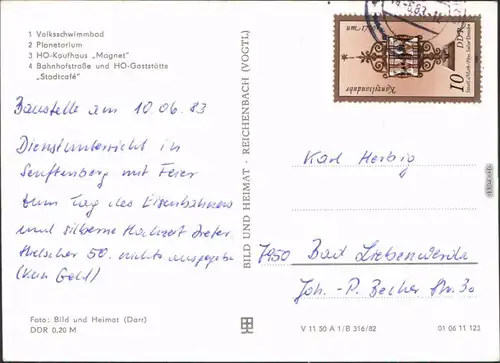 1 Volksschwimmbad
2 Planetarium
3 HO-Kaufhaus „Magnet"
4 Bahnhofstraße und HO-Gaststätte
„Stadtcafé"
Baustelle am 10.06.83
Dienstunterricht in
Senftenberg mit Feier
zum Tag des Eisenbahners
und silberne Hochzeit Dieter
50. nichts ausgegeben
(kein Geld)
Foto: Bild und Heimat (Darr)
DDR 0,20 M
BILD UND HEIMAT · REICHENBACH (VOGTL)
DDR
10
Kanzelsanduhr
Karl Herbig
7950 Bad Liebenwerda
Joh.-P. Becher Str. 30
V 11 50 A 1/B 316/82
01 06 11 123